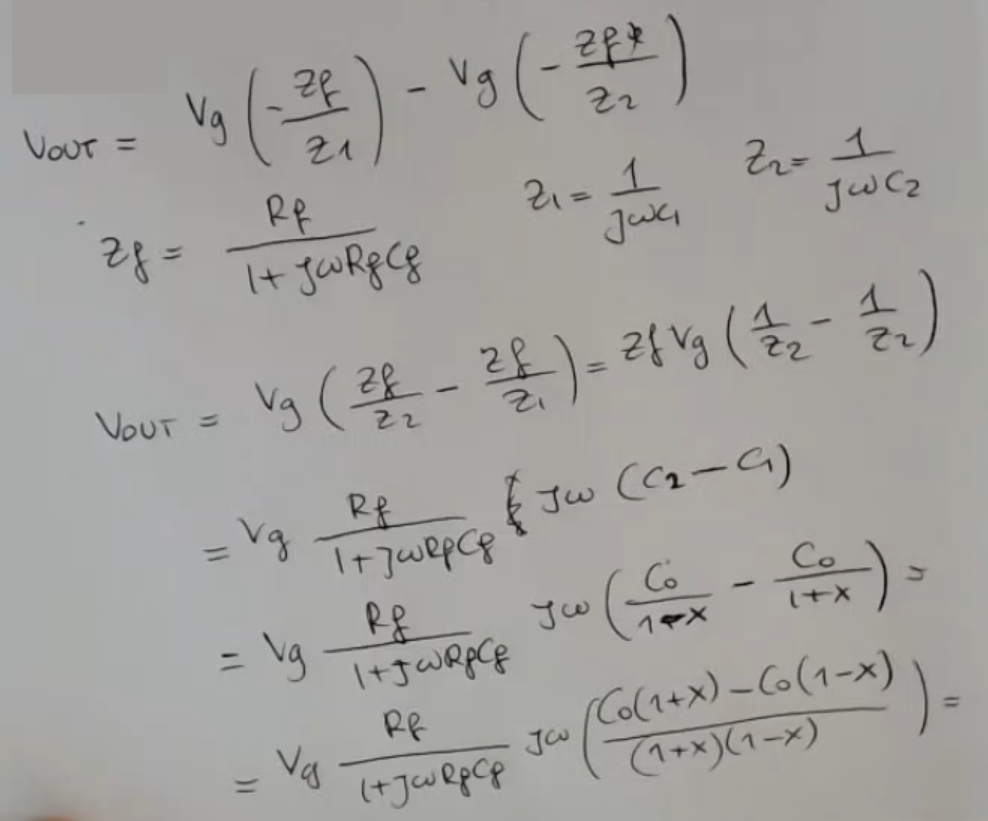 VOUT = Vg (- Zf/Z1) - Vg (- Zf/Z2)
Zf = Rf/(1+jωRfCf) Z1 = 1/(jωC1) Z2 = 1/(jωC2)
VOUT = Vg (Zf/Z2 - Zf/Z1) = Zf Vg (1/Z2 - 1/Z2)
= Vg Rf/(1+jωRfCf) jω (C2 - C1)
= Vg Rf/(1+jωRfCf) jω (C0/(1-x) - C0/(1+x)) =
= Vg Rf/(1+jωRfCf) jω ((C0(1+x) - C0(1-x))/((1+x)(1-x))) =